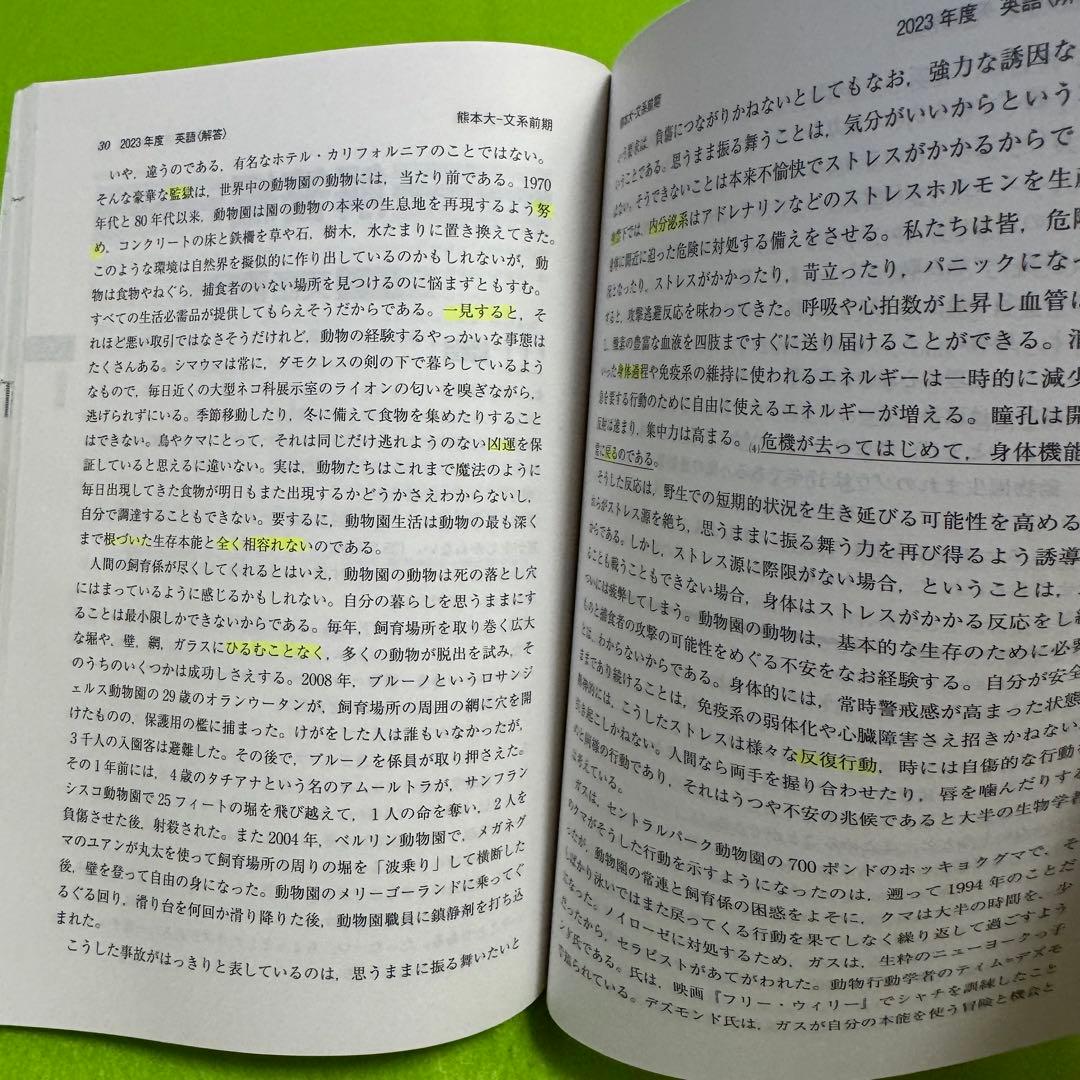 30 2023年度 英語〈解答〉
熊本大-文系前期
いや，違うのである，有名なホテル・カリフォルニアのことではない。
そんな豪華な監獄は，世界中の動物園の動物には，当たり前である。1970
年代と80年代以来，動物園は園の動物の本来の生息地を再現するよう努
め，コンクリートの床と鉄柵を草や石，樹木，水たまりに置き換えてきた。
このような環境は自然界を擬似的に作り出しているのかもしれないが，動
物は食物やねぐら，捕食者のいない場所を見つけるのに悩まずともすむ。
すべての生活必需品が提供してもらえそうだからである。一見すると，そ
れほど悪い取引ではなさそうだけれど，動物の経験するやっかいな事態は
たくさんある。シマウマは常に，ダモクレスの剣の下で暮らしているよう
なもので，毎日近くの大型ネコ科展示室のライオンの匂いを嗅ぎながら，
逃げられずにいる。季節移動したり，冬に備えて食物を集めたりすること
はできない。鳥やクマにとって，それは同じだけ逃れようのない凶運を保
証していると思えるに違いない。実は，動物たちはこれまで魔法のように
毎日出現してきた食物が明日もまた出現するかどうかさえわからないし，
自分で調達することもできない。要するに，動物園生活は動物の最も深く
まで根づいた生存本能と全く相容れないのである。
人間の飼育係が尽くしてくれるとはいえ，動物園の動物は死の落とし穴
にはまっているように感じるかもしれない。自分の暮らしを思うままにす
ることは最小限しかできないからである。毎年，飼育場所を取り巻く広大
な堀や，壁，網，ガラスにひるむことなく，多くの動物が脱出を試み，そ
のうちのいくつかは成功しさえする。2008年，ブルーノというロサンジ
ェルス動物園の29歳のオランウータンが，飼育場所の周囲の網に穴を開
けたものの，保護用の檻に捕まった。けがをした人は誰もいなかったが，
3千人の入園客は避難した。その後で，ブルーノを係員が取り押さえた。
その1年前には，4歳のタチアナという名のアムールトラが，サンフラン
シスコ動物園で25フィートの堀を飛び越えて，1人の命を奪い，2人を
負傷させた後，射殺された。また2004年，ベルリン動物園で，メガネグ
マのユアンが丸太を使って飼育場所の周りの堀を「波乗り」して横断した
後，壁を登って自由の身になった。動物園のメリーゴーランドに乗ってぐ
るぐる回り，滑り台を何回か滑り降りた後，動物園職員に鎮静剤を打ち込
まれた。
こうした事故がはっきりと表しているのは，思うままに振る舞いたいと
熊本大-文系前期
2023年度 英語
いう要求は，負傷につながりかねないとしてもなお，強力な誘因な
いうことである。思うまま振る舞うことは，気分がいいからという
はない。そうできないことは本来不愉快でストレスがかかるからで
下では，内分泌系はアドレナリンなどのストレスホルモンを生産
身体に間近に迫った危険に対処する備えをさせる。私たちは皆，危険
となったり，ストレスがかかったり，苛立ったり，パニックになっ
すると，攻撃逃避反応を味わってきた。呼吸や心拍数が上昇し血管は
し，酸素の豊富な血液を四肢まですぐに送り届けることができる。消
いった身体過程や免疫系の維持に使われるエネルギーは一時的に減少
急を要する行動のために自由に使えるエネルギーが増える。瞳孔は開
反射は速まり，集中力は高まる。(4)危機が去ってはじめて，身体機能
常に戻るのである。
そうした反応は，野生での短期的状況を生き延びる可能性を高める
おらがストレス源を絶ち，思うままに振る舞う力を再び得るよう誘導
からである。しかし，ストレス源に際限がない場合，ということは，
ることも戦うこともできない場合，身体はストレスがかかる反応をし続
ついには疲弊してしまう。動物園の動物は，基本的な生存のために必要
ものと捕食者の攻撃の可能性をめぐる不安をなお経験する。自分が安全
とは，わからないからである。身体的には，常時警戒感が高まった状態
ままであり続けることは，免疫系の弱体化や心臓障害さえ招きかねない
精神的には，こうしたストレスは様々な反復行動，時には自傷的な行動
引き起こしかねない。人間なら両手を握り合わせたり，唇を噛んだりする
のと同様の行動であり，それはうつや不安の兆候であると大半の生物学者
は考えている。
ガスは，セントラルパーク動物園の700ポンドのホッキョクグマで，そ
のクマがそうした行動を示すようになったのは，遡って1994年のことだ
ったが，動物園の常連と飼育係の困惑をよそに，クマは大半の時間を，少
しばかり泳いではまた戻ってくる行動を果てしなく繰り返して過ごすよう
になった。ノイローゼに対処するため，ガスは，生粋のニューヨークっ子
だったから，セラピストがあてがわれた。動物行動学者のティム=デズモ
ンド氏である。氏は，映画『フリー・ウィリー』でシャチを訓練したこと
で知られている。デズモンド氏は，ガスが自分の本能を使う冒険と機会と